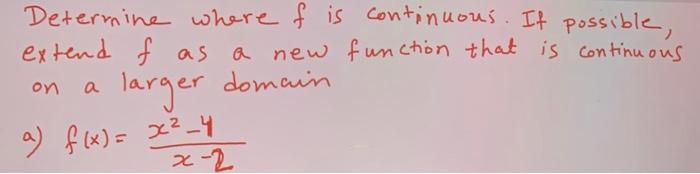 Determine where f is continuous. If possible,
extend f as a new function that is continuous
on a larger domain
a) f(x) = x²-4
x-2